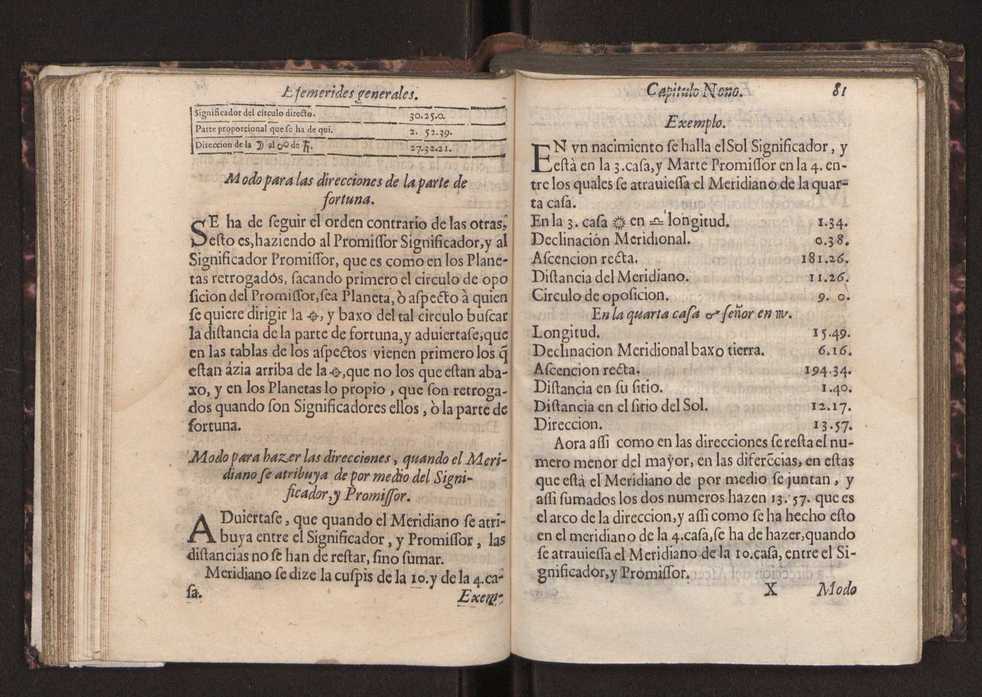 Efemerides generales.
Significador del circulo directo. 30.25.0.
Parte proporcional que se ha de qui. 2. 52.39.
Direccion de la ☽ al ☍ de ♄. 27.32.21.
Modo para las direcciones de la parte de
fortuna.
SE ha de seguir el orden contrario de las otras,
esto es, haziendo al Promissor Significador, y al
Significador Promissor, que es como en los Plane-
tas retrogados, sacando primero el circulo de opo
sicion del Promissor, sea Planeta, ò aspecto à quien
se quiere dirigir la ⊕, y baxo del tal circulo buscar
la distancia de la parte de fortuna, y aduiertase, que
en las tablas de los aspectos vienen primero los q̃
estan ázia arriba de la ⊕, que no los que estan aba-
xo, y en los Planetas lo propio, que son retroga-
dos quando son Significadores ellos, ò la parte de
fortuna.
Modo para hazer las direcciones, quando el Meri-
diano se atribuya de por medio del Signi-
ficador, y Promissor.
ADuiertase, que quando el Meridiano se atri-
buya entre el Significador, y Promissor, las
distancias no se han de restar, sino sumar.
Meridiano se dize la cuspis de la 10. y de la 4. ca-
sa. Exem-
Capitulo Nono. 81
Exemplo.
EN vn nacimiento se halla el Sol Significador, y
està en la 3. casa, y Marte Promissor en la 4. en-
tre los quales se atrauiessa el Meridiano de la quar-
ta casa.
En la 3. casa ☼ en ♎ longitud. 1.34.
Declinacion Meridional. 0.38.
Ascencion recta. 181.26.
Distancia del Meridiano. 11.26.
Circulo de oposicion. 9. 0.
En la quarta casa ♂ señor en ♏.
Longitud. 15.49.
Declinacion Meridional baxo tierra. 6.16.
Ascencion recta. 194.34.
Distancia en su sitio. 1.40.
Distancia en el sitio del Sol. 12.17.
Direccion. 13.57.
Aora assi como en las direcciones se resta el nu-
mero menor del mayor, en las diferẽcias, en estas
que està el Meridiano de por medio se juntan, y
assi sumados los dos numeros hazen 13. 57. que es
el arco de la direccion, y assi como se ha hecho esto
en el meridiano de la 4. casa, se ha de hazer, quando
se atrauiessa el Meridiano de la 10. casa, entre el Si-
gnificador, y Promissor.
X Modo